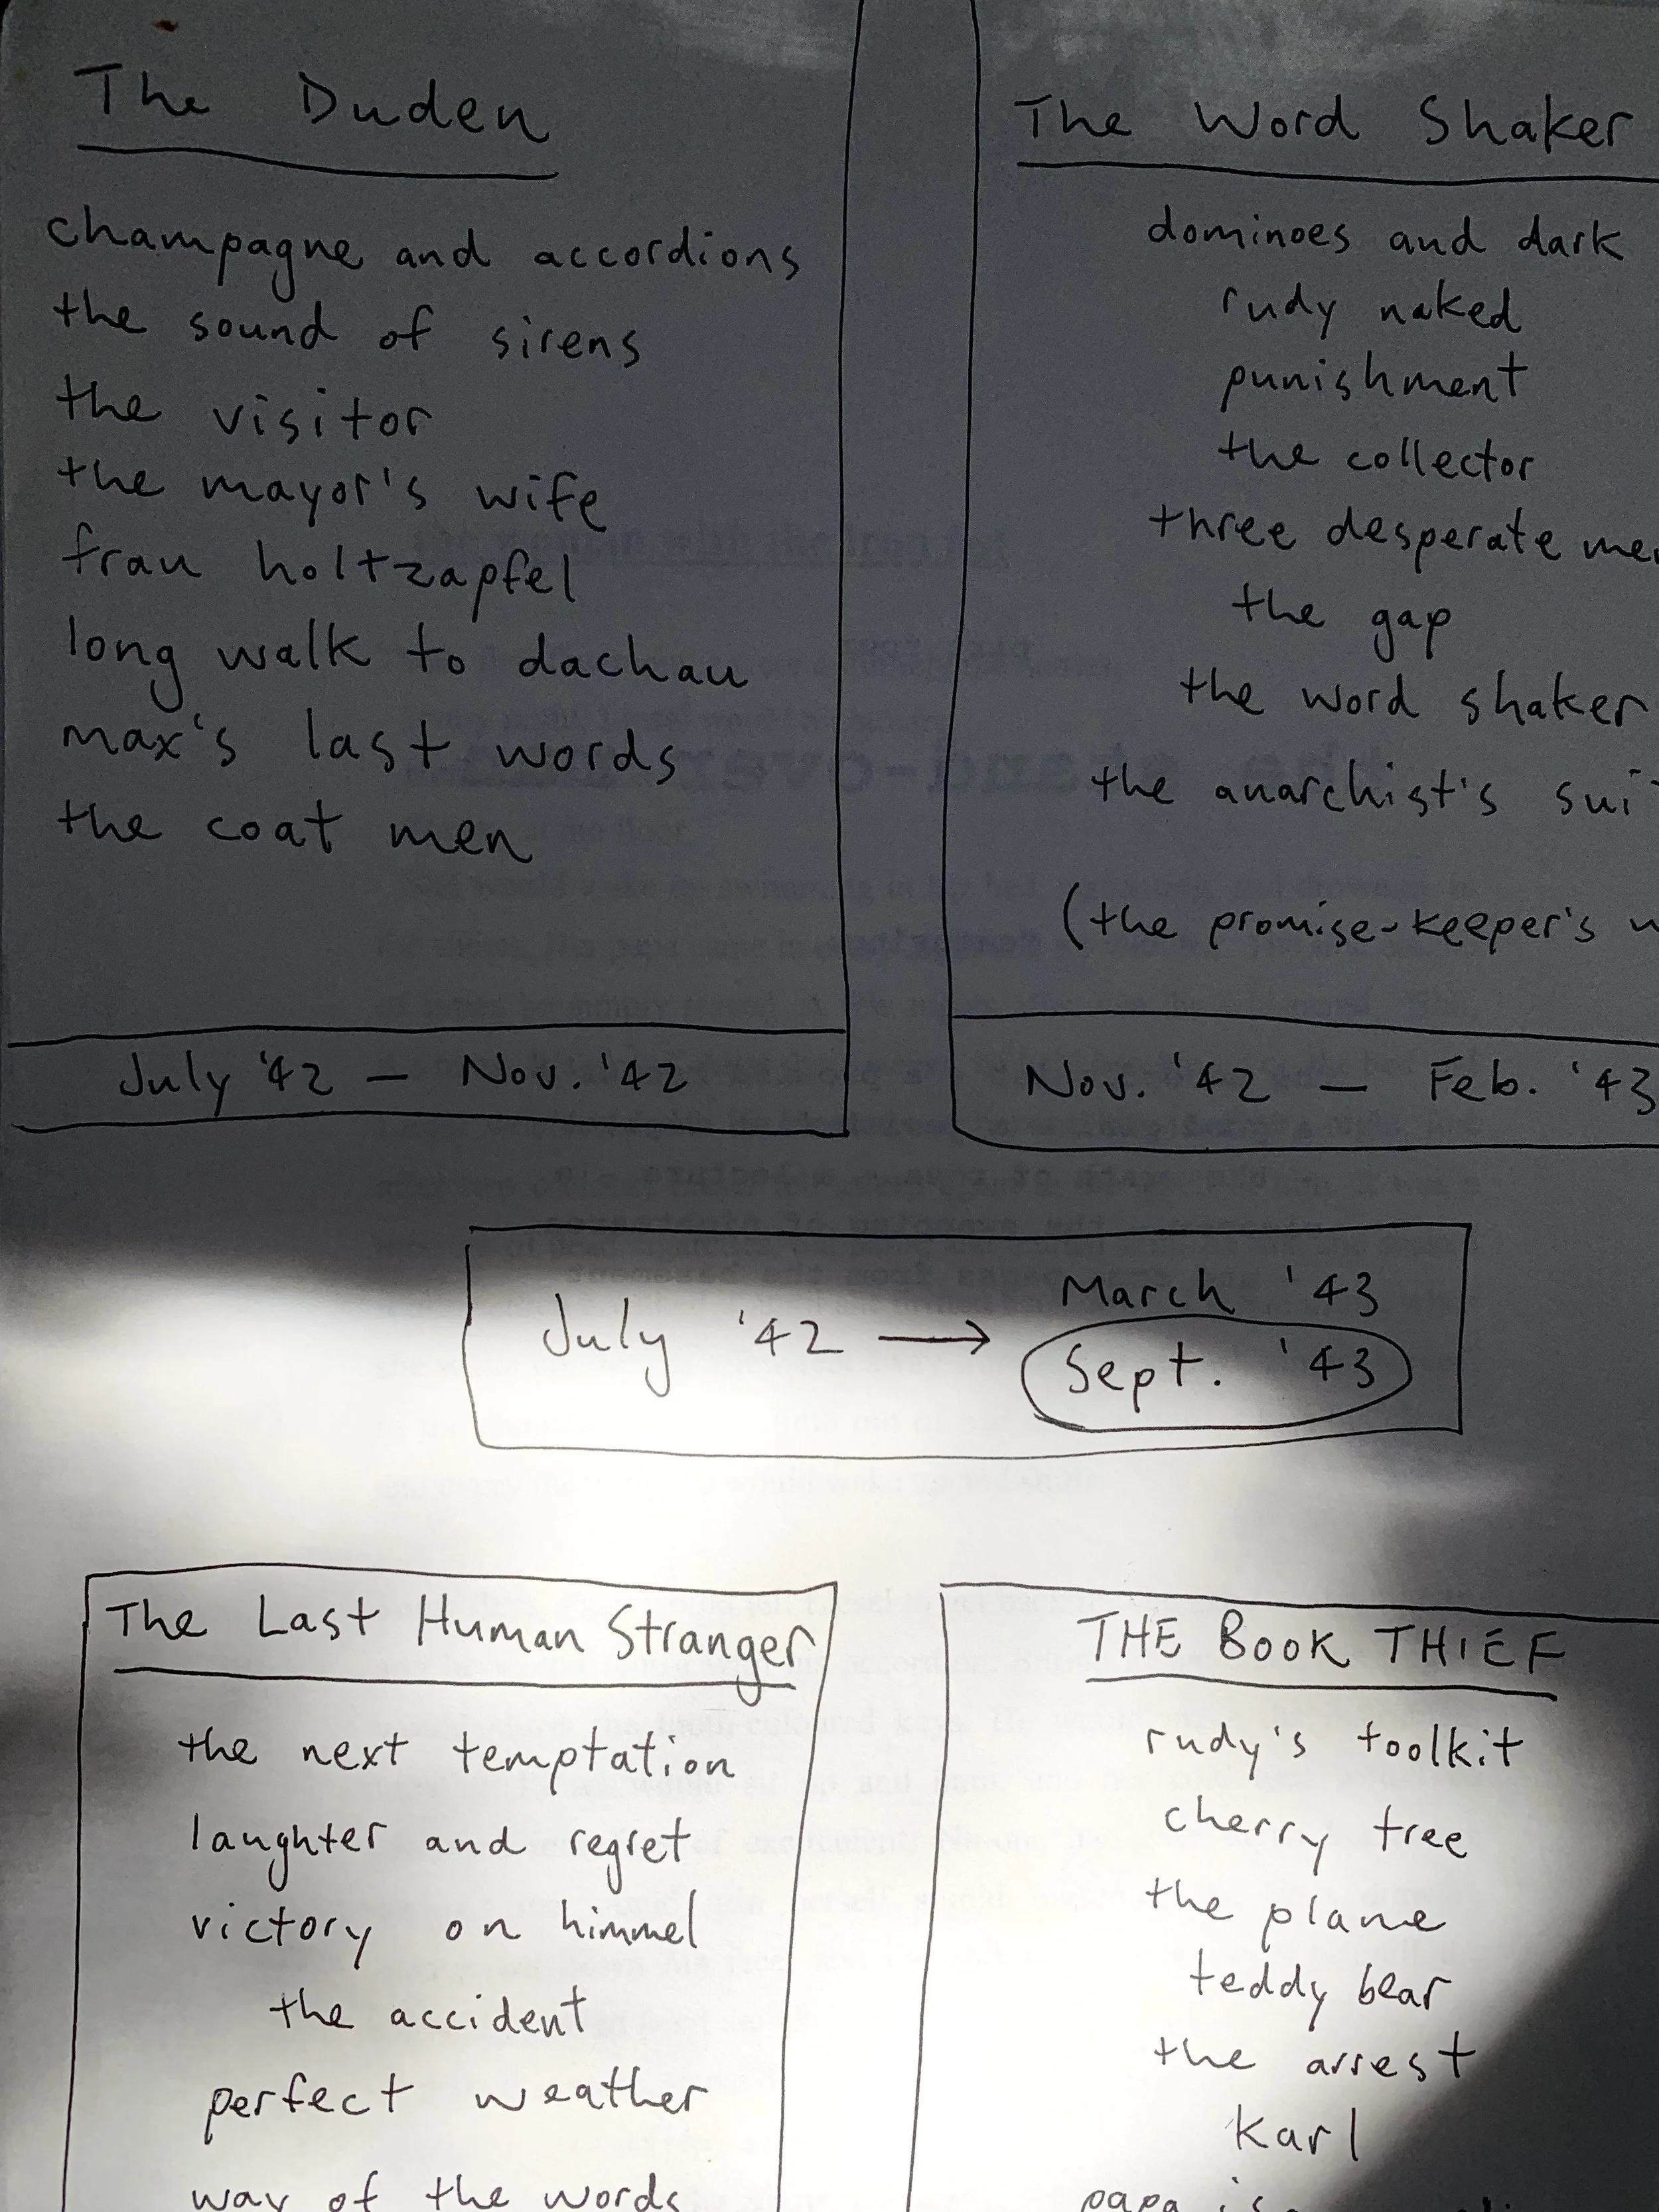 The Duden
champagne and accordions
the sound of sirens
the visitor
the mayor's wife
frau holtzapfel
long walk to dachau
max's last words
the coat men
July '42 — Nov. '42
The Word Shaker
dominoes and dark
rudy naked
punishment
the collector
three desperate
the gap
the word shaker
the anarchist's
(the promise-keeper's
Nov. '42 — Feb. '43
July '42 → March '43
Sept. '43
The Last Human Stranger
the next temptation
laughter and regret
victory on himmel
the accident
perfect weather
way of the words
THE BOOK THIEF
rudy's toolkit
cherry tree
the plane
teddy bear
the arrest
Karl
papa